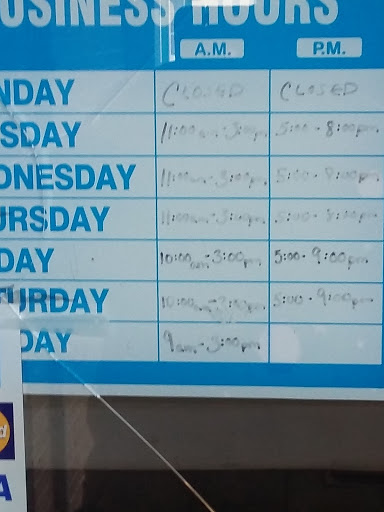 USINESS HOURS
A.M. P.M.
NDAY CLOSED CLOSED
SDAY 11:00am-3:00pm 5:00-8:00pm
DNESDAY 11:00am-3:00pm 5:00-8:00pm
URSDAY 11:00am-3:00pm 5:00-8:00pm
DAY 10:00am-3:00pm 5:00-9:00pm
TURDAY 10:00am-3:00pm 5:00-9:00pm
DAY 9am-3:00pm
A